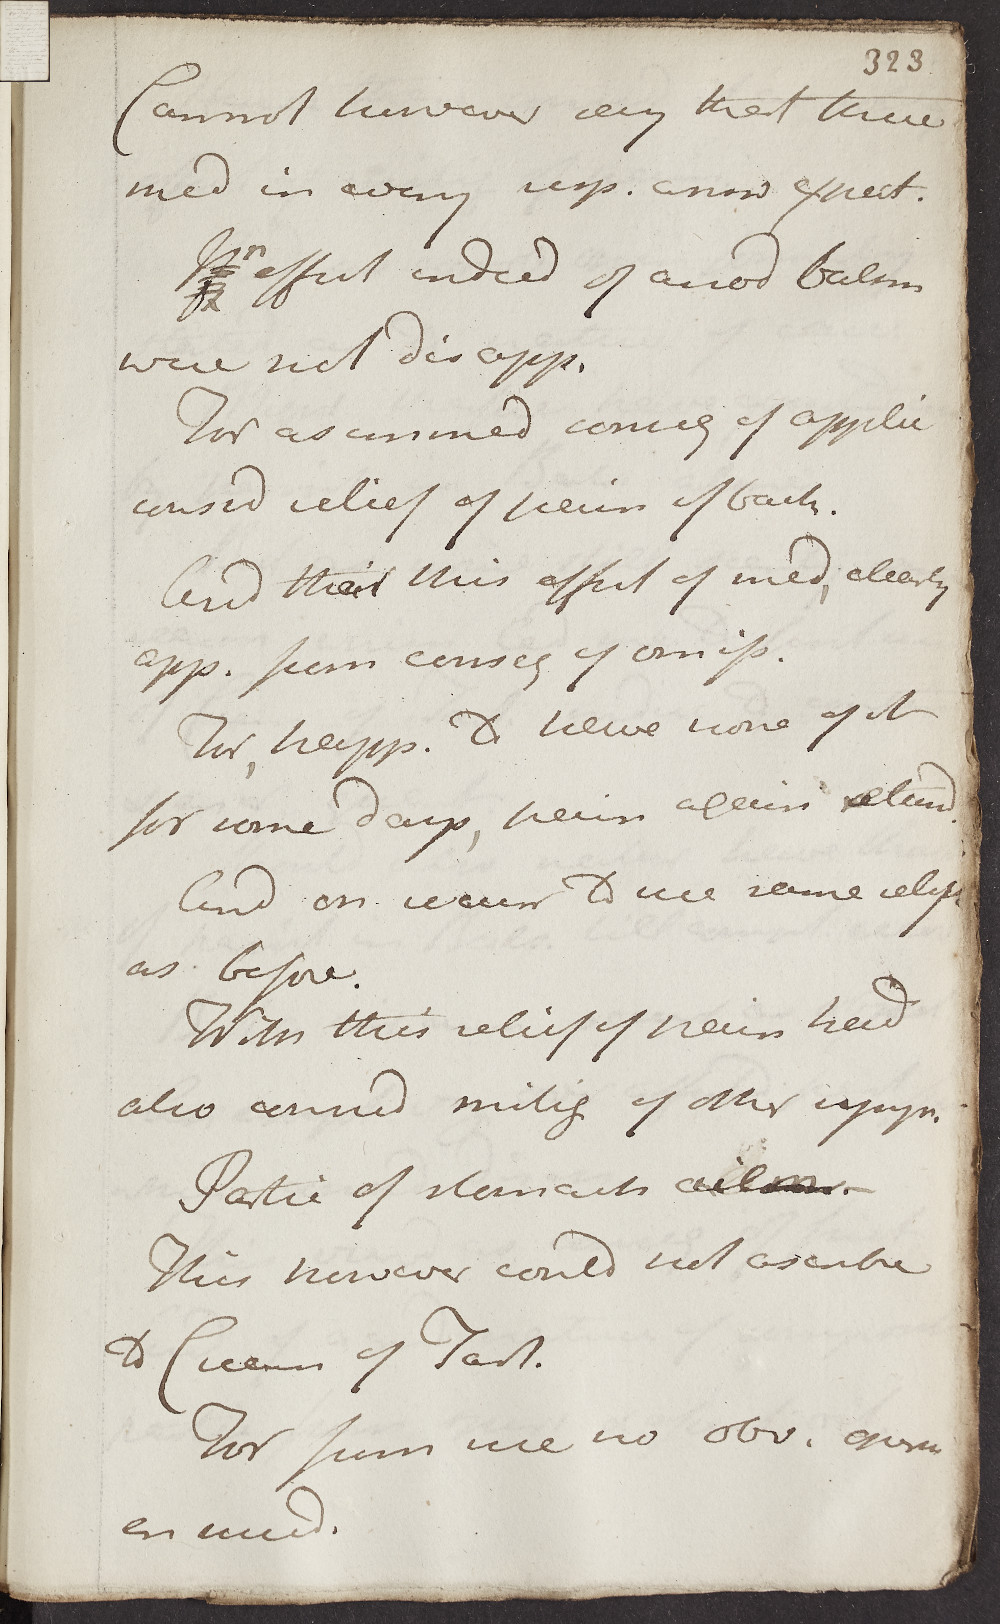 323
Cannot however say that these
med in every resp. answ expect.
effect indeed of anod balsm
were not disapp.
For as immed conseq of applic
consid relief of pain of back.
And that this effect of med, clearly
app. from conseq of omiss.
For, happ. to have none of it
for some days, pain again retund.
And on recurr to use same relief
as before.
With this relief of pain had
also occurred mitig of other symp.
Partic of stomach
This however could not ascribe
to Cream of Tart.
For from use no obv. opern
ensued.